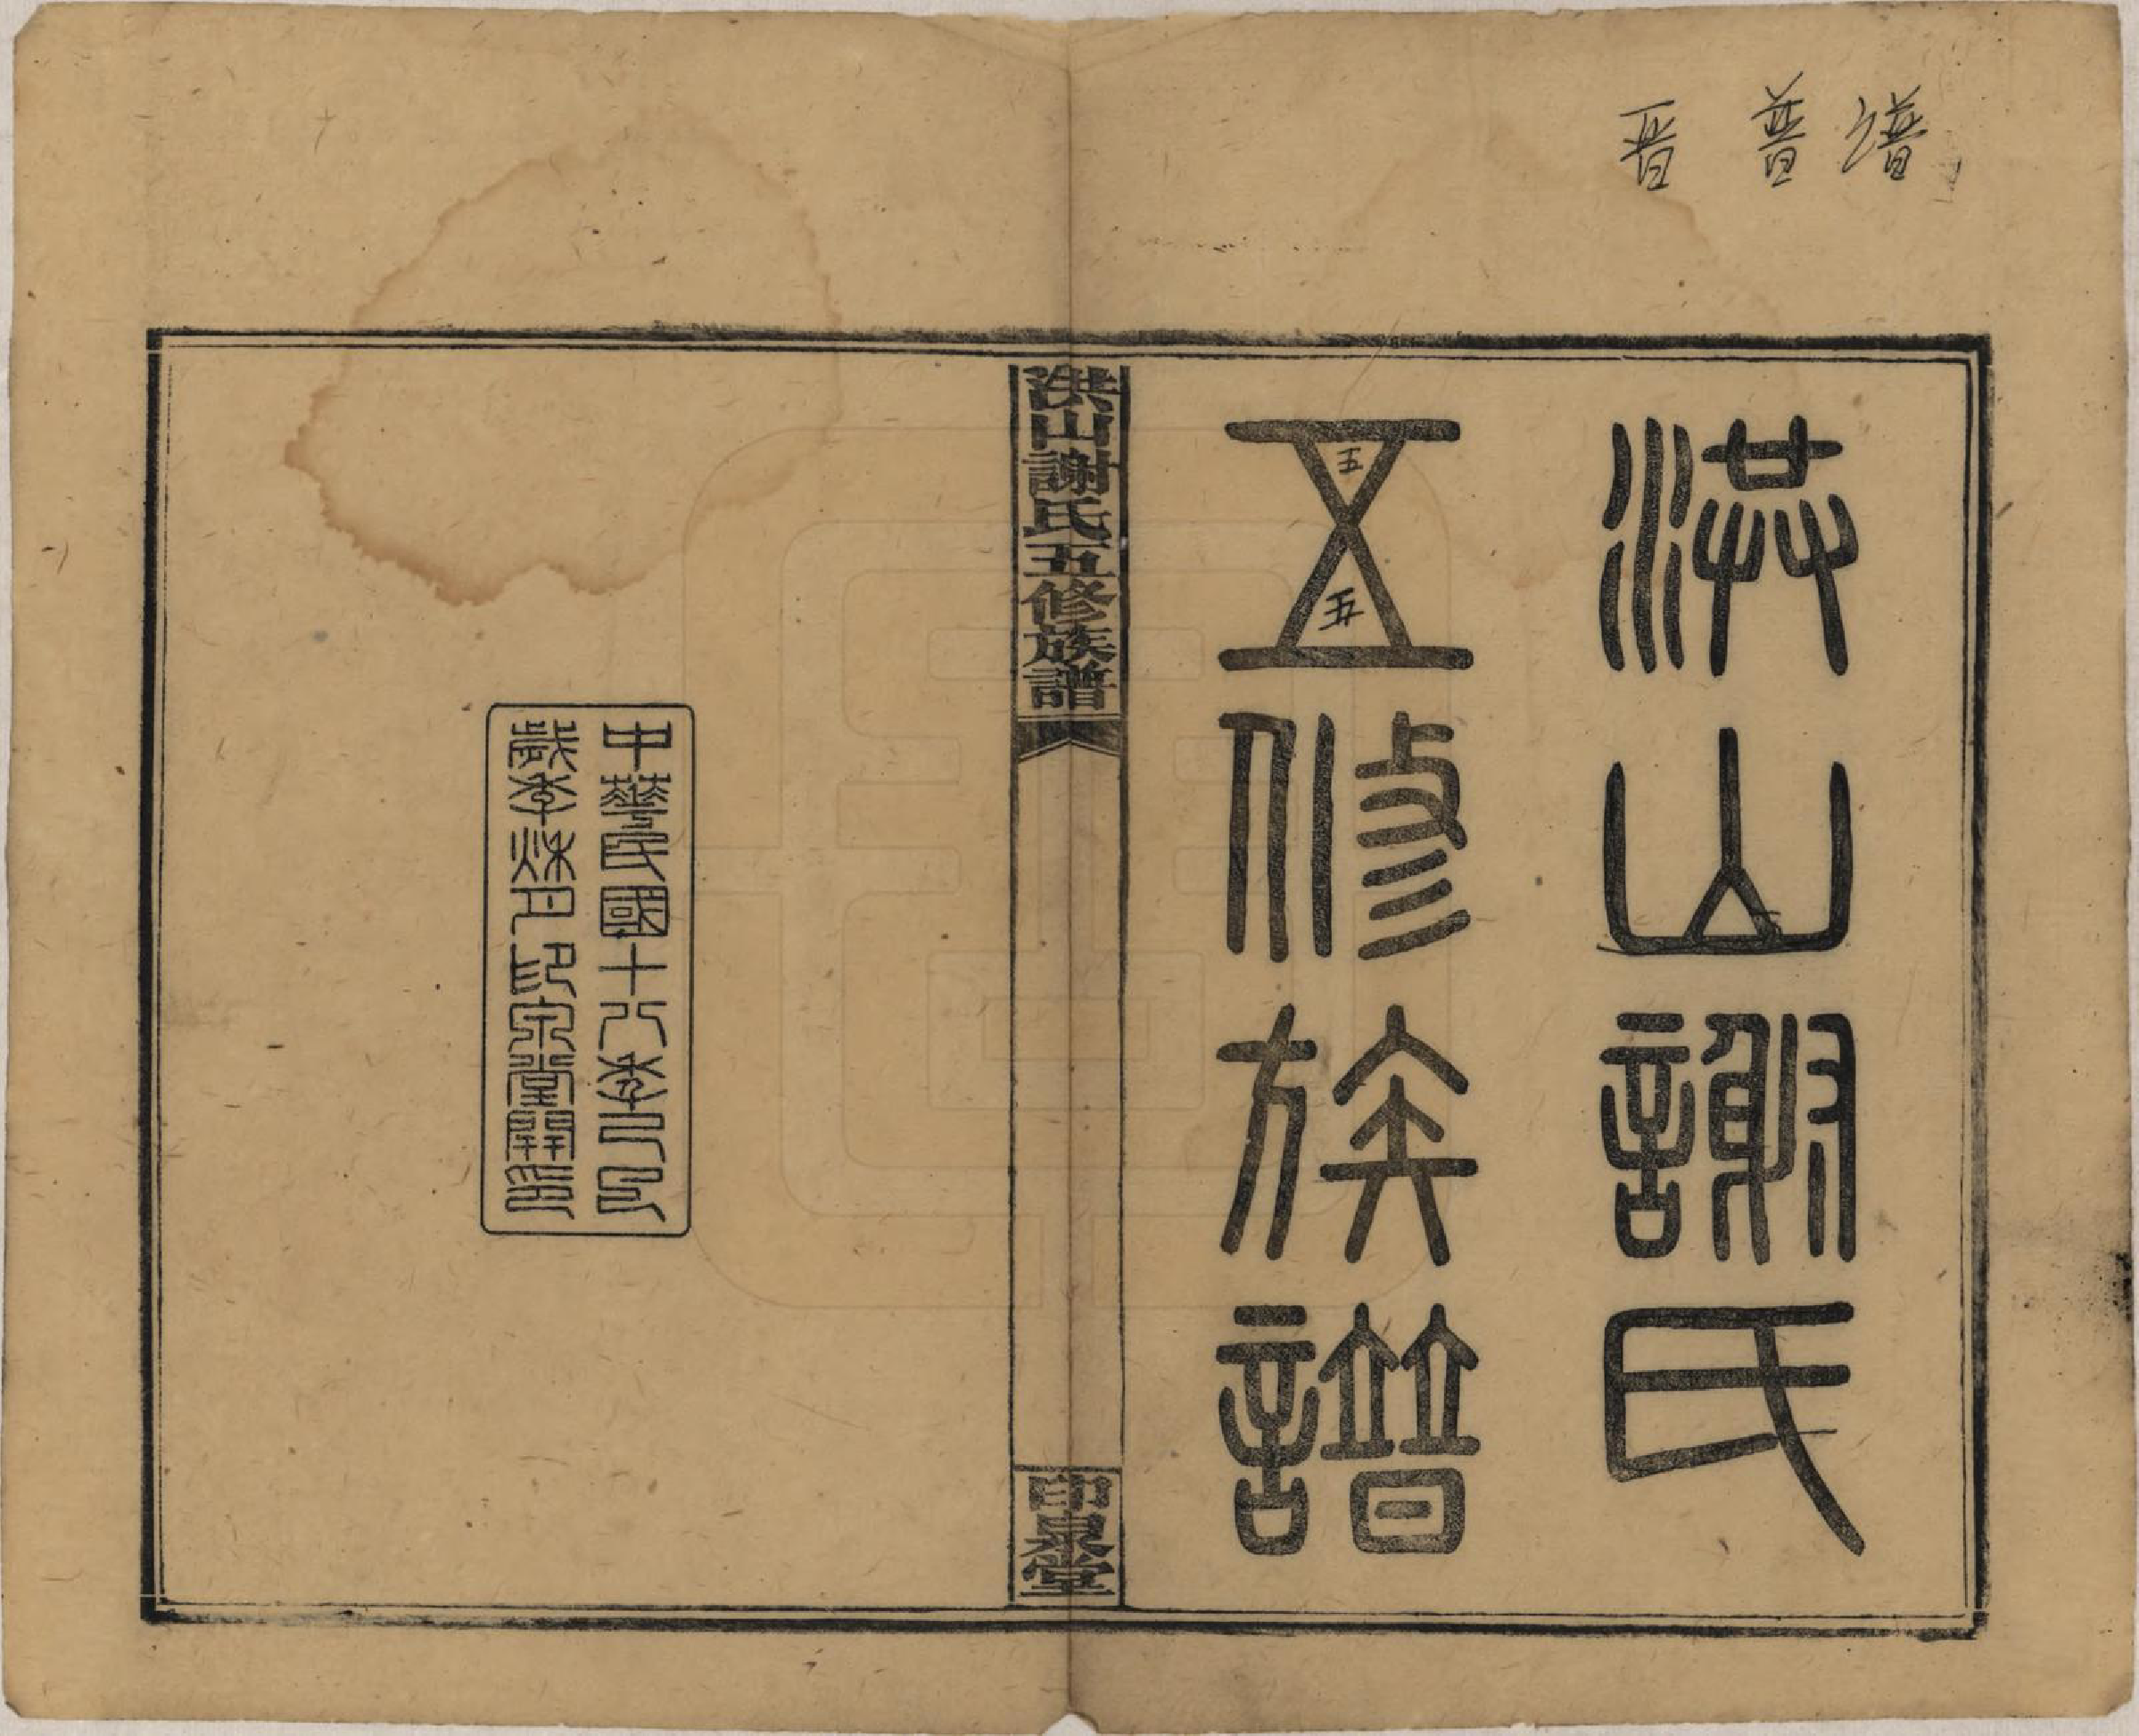 晋 普 谱
洪山謝氏
五修族譜
五
五
洪山謝氏五修族譜
印泉堂
中華民國十八年己巳
歲季秋月印泉堂開印